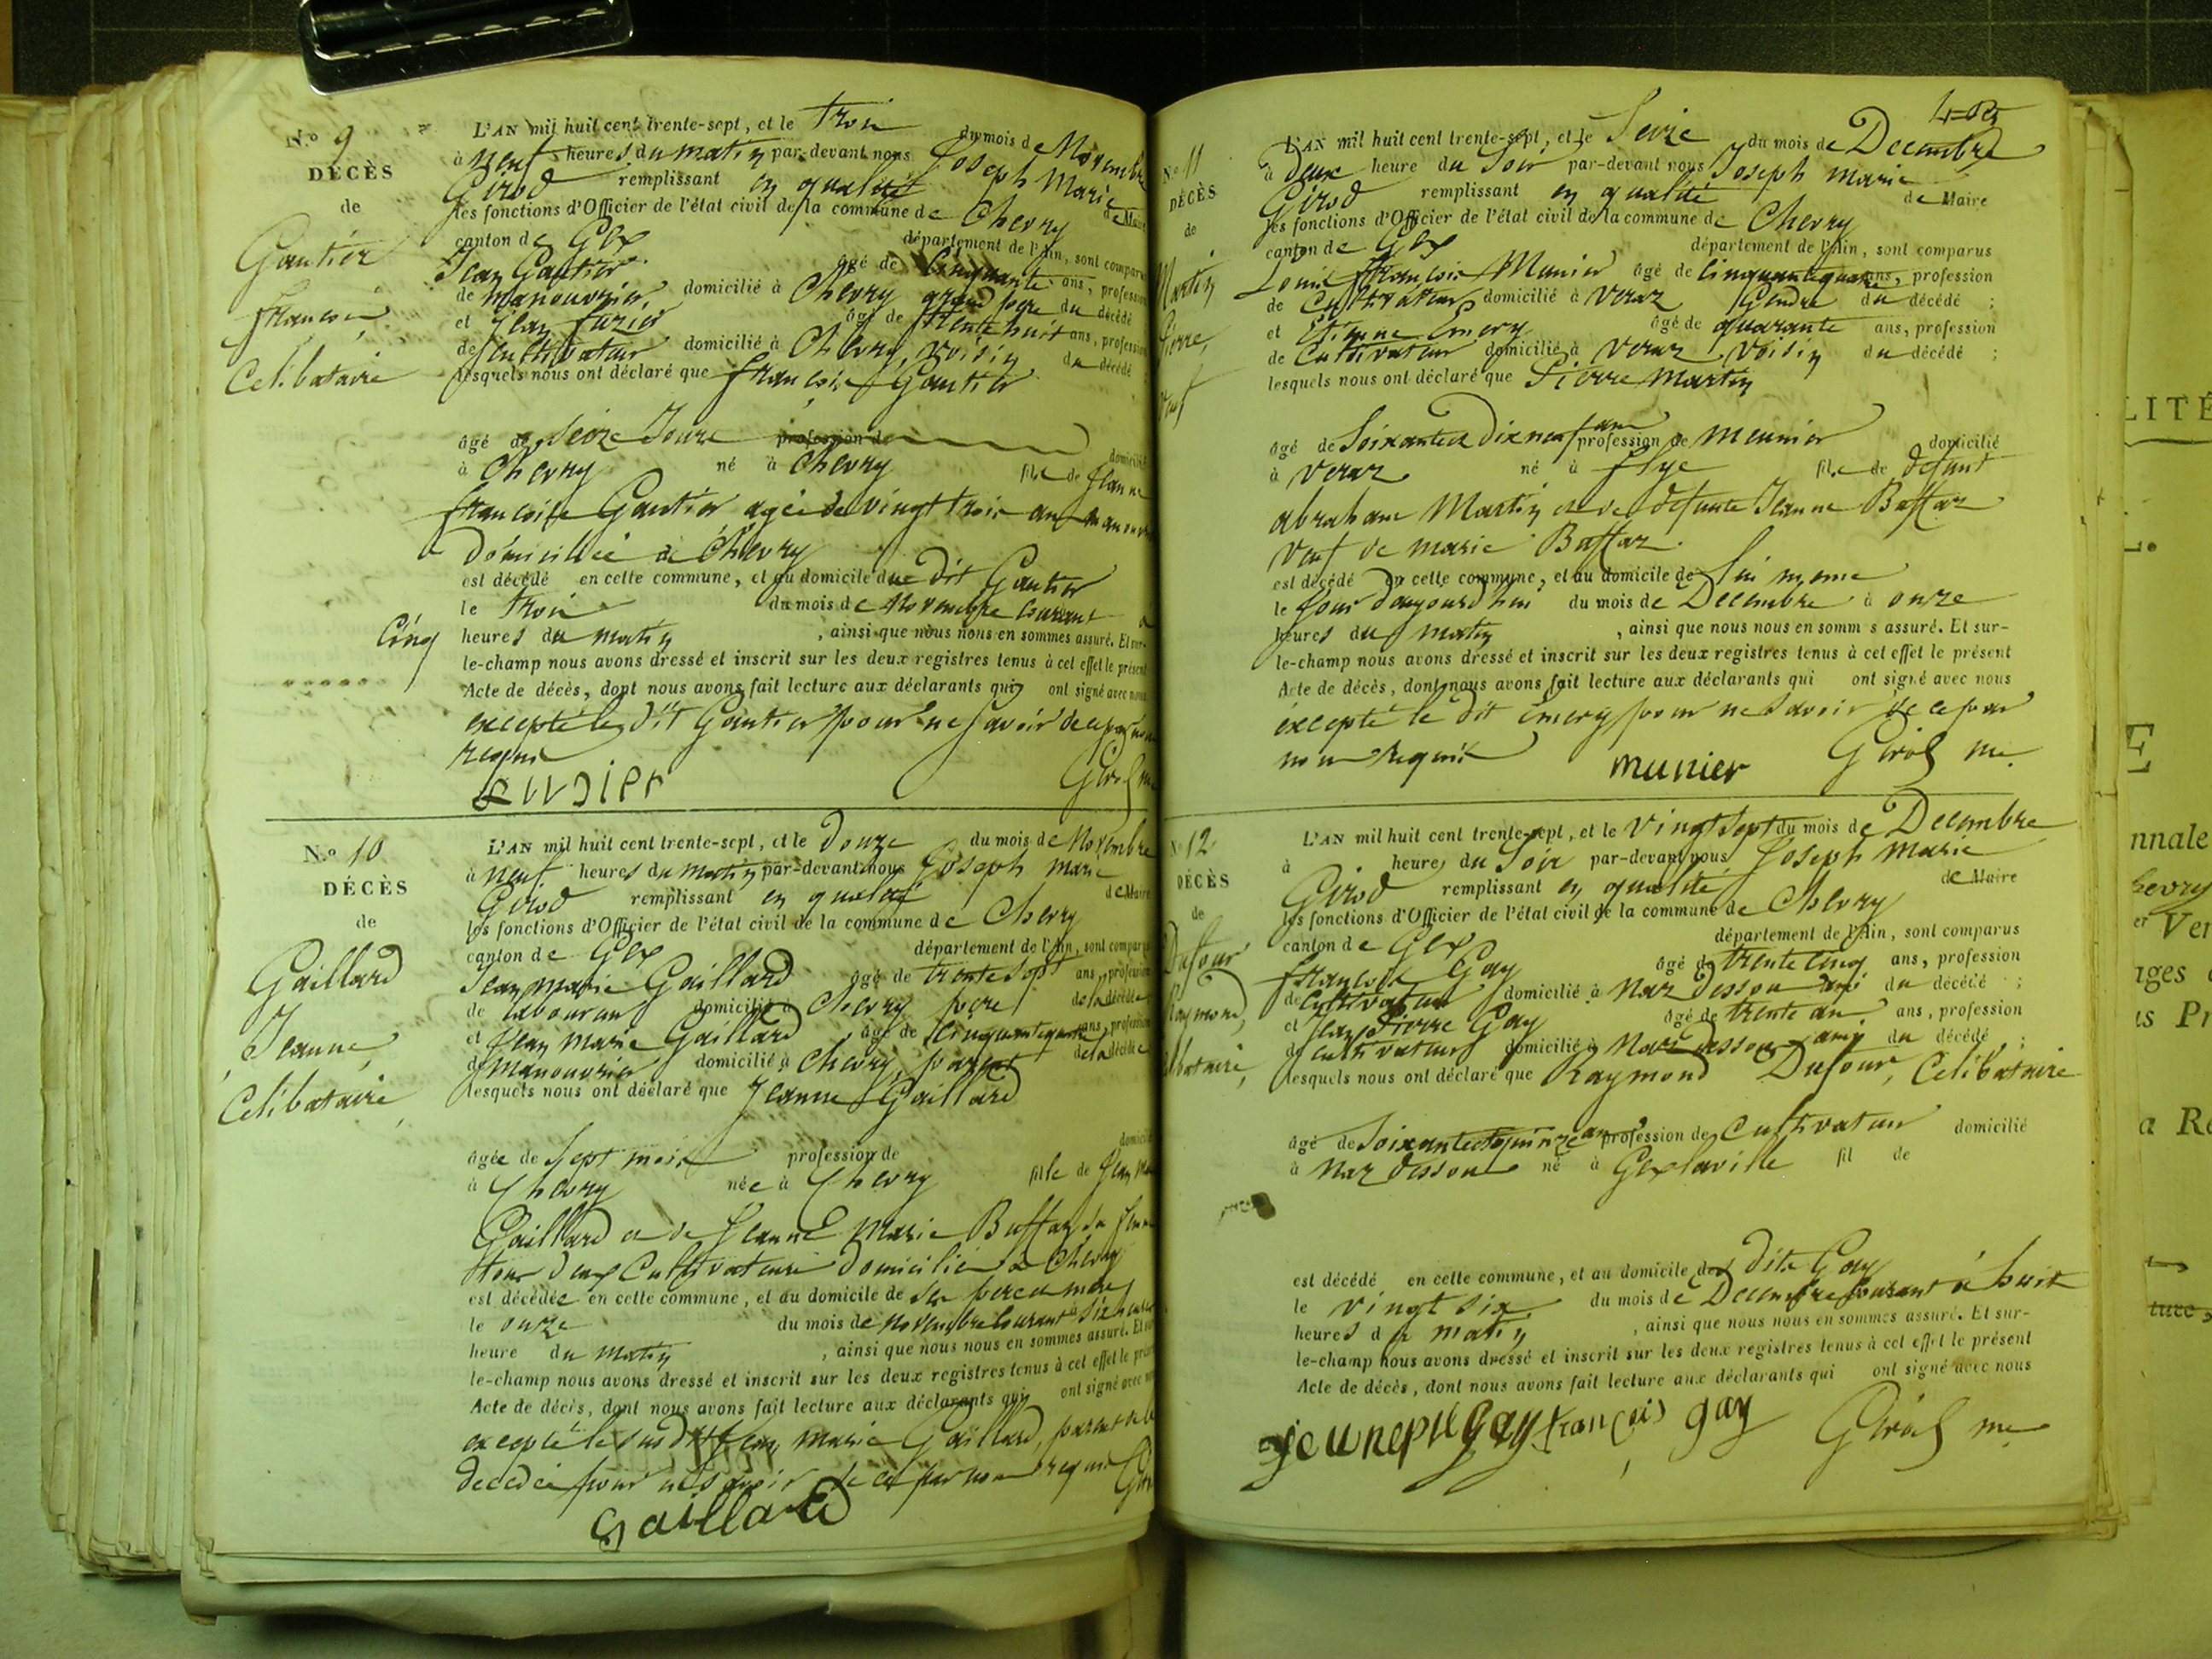 N.º 9
DÉCÈS
de
Gautier
françois
Celibataire
L'AN mil huit cent trente-sept, et le trois du mois de Novembre
à neuf heures du matin par-devant nous Joseph Marie
Girod remplissant en qualité de Maire
les fonctions d'Officier de l'état civil de la commune de Chevry
canton de Gex département de l'Ain, sont comparus
Jean Gautier âgé de Cinquante ans, profession
de manouvrier, domicilié à Chevry grand père du décédé
et Jean âgé de trente huit ans, profession
de Cultivateur domicilié à Chevry, voisin du décédé
lesquels nous ont déclaré que françois Gautier
âgé de Seize Jours profession de domicilié
à Chevry né à Chevry fils de Jeanne
françoise Gautier agée de vingt trois ans
domiciliée à Chevry
est décédé en cette commune, et au domicile du dit Gautier
le trois du mois de Novembre Courant à
Cinq heures du matin, ainsi que nous nous en sommes assuré. Et sur-
le-champ nous avons dressé et inscrit sur les deux registres tenus à cet effet le présent
Acte de décès, dont nous avons fait lecture aux déclarants qui ont signé avec nous
excepté le dit Gautier pour ne savoir de ce par nous
requis
Girod me
N.º 10
DÉCÈS
de
Gaillard
Jeanne,
Celibataire
L'AN mil huit cent trente-sept, et le Douze du mois de Novembre
à neuf heures du matin par-devant nous Joseph marie
Girod remplissant en qualité de Maire
les fonctions d'Officier de l'état civil de la commune de Chevry
canton de Gex département de l'Ain, sont comparus
Jean marie Gaillard âgé de trente sept ans, profession
de laboureur domicilié à Chevry père de la décédée
et Jean Marie Gaillard âgé de Cinquantequatre ans, profession
de manouvrier domicilié à Chevry, parent de la décédée
lesquels nous ont déclaré que Jeanne Gaillard
âgée de Sept mois profession de domicilié
à Chevry née à Chevry fille de Jean Marie
Gaillard et de Jeanne Marie Buffaz sa femme
tous deux Cultivateurs domiciliés à Chevry
est décédée en cette commune, et au domicile de ses père et mère
le onze du mois de novembre Courant à dix
heure du matin, ainsi que nous nous en sommes assuré. Et sur-
le-champ nous avons dressé et inscrit sur les deux registres tenus à cet effet le présent
Acte de décès, dont nous avons fait lecture aux déclarants qui ont signé avec nous
excepté le susdit Jean marie Gaillard, parent de la
decedée pour ne savoir de ce par nous requis
Gaillard
N.º 11
DÉCÈS
de
Martin
Pierre,
Veuf
L'AN mil huit cent trente-sept, et le Seize du mois de Decembre
à Deux heure du Soir par-devant nous Joseph marie
Girod remplissant en qualité de Maire
les fonctions d'Officier de l'état civil de la commune de Chevry
canton de Gex département de l'Ain, sont comparus
Louis françois Munier âgé de Cinquantequatre ans, profession
de Cultivateur domicilié à Veraz Gendre du décédé ;
et Etienne Emery âgé de quarante ans, profession
de Cultivateur domicilié à Veraz Voisin du décédé ;
lesquels nous ont déclaré que Pierre Martin
âgé de Soixantect Dixneuf ans profession de meunier domicilié
à Veraz né à flye fils de defunt
abraham Martin et de defunte Jeanne Baffaz
Veuf de marie Baffaz
est décédé en cette commune, et au domicile de lui meme
le Jour daujourdhui du mois de Decembre à onze
heures du matin, ainsi que nous nous en somm s assuré. Et sur-
le-champ nous avons dressé et inscrit sur les deux registres tenus à cet effet le présent
Acte de décès, dont nous avons fait lecture aux déclarants qui ont signé avec nous
éxcepté le dit émery pour ne Savoir de ce par
nous requis
munier Girod me
N.º 12
DÉCÈS
de
Dufour
Raymond,
L'AN mil huit cent trente-sept, et le Vingt Sept du mois de Decembre
à heures du Soir par-devant nous Joseph Marie
Girod remplissant en qualité de Maire
les fonctions d'Officier de l'état civil de la commune de Chevry
canton de Gex département de l'Ain, sont comparus
françois Gay âgé de trente cinq ans, profession
de Cultivateur domicilié à Naz Dessous ami du décédé ;
et Jean Pierre Gay âgé de trente ans ans, profession
de Cultivateur domicilié à Naz dessous ami du décédé ;
lesquels nous ont déclaré que Raymond Dufour, Celibataire
âgé de Soixantectquinze ans profession de Cultivateur domicilié
à Naz dessous né à Gexlaville fil de
est décédé en cette commune, et au domicile des dits Gay
le vingt six du mois de Decembre Courant à huit
heures du matin, ainsi que nous nous en sommes assuré. Et sur-
le-champ nous avons dressé et inscrit sur les deux registres tenus à cet effet le présent
Acte de décès, dont nous avons fait lecture aux déclarants qui ont signé avec nous
gay françois gay Girod me
LITÉ
E
nnale
Chevry
et Ver
ages
a Ré